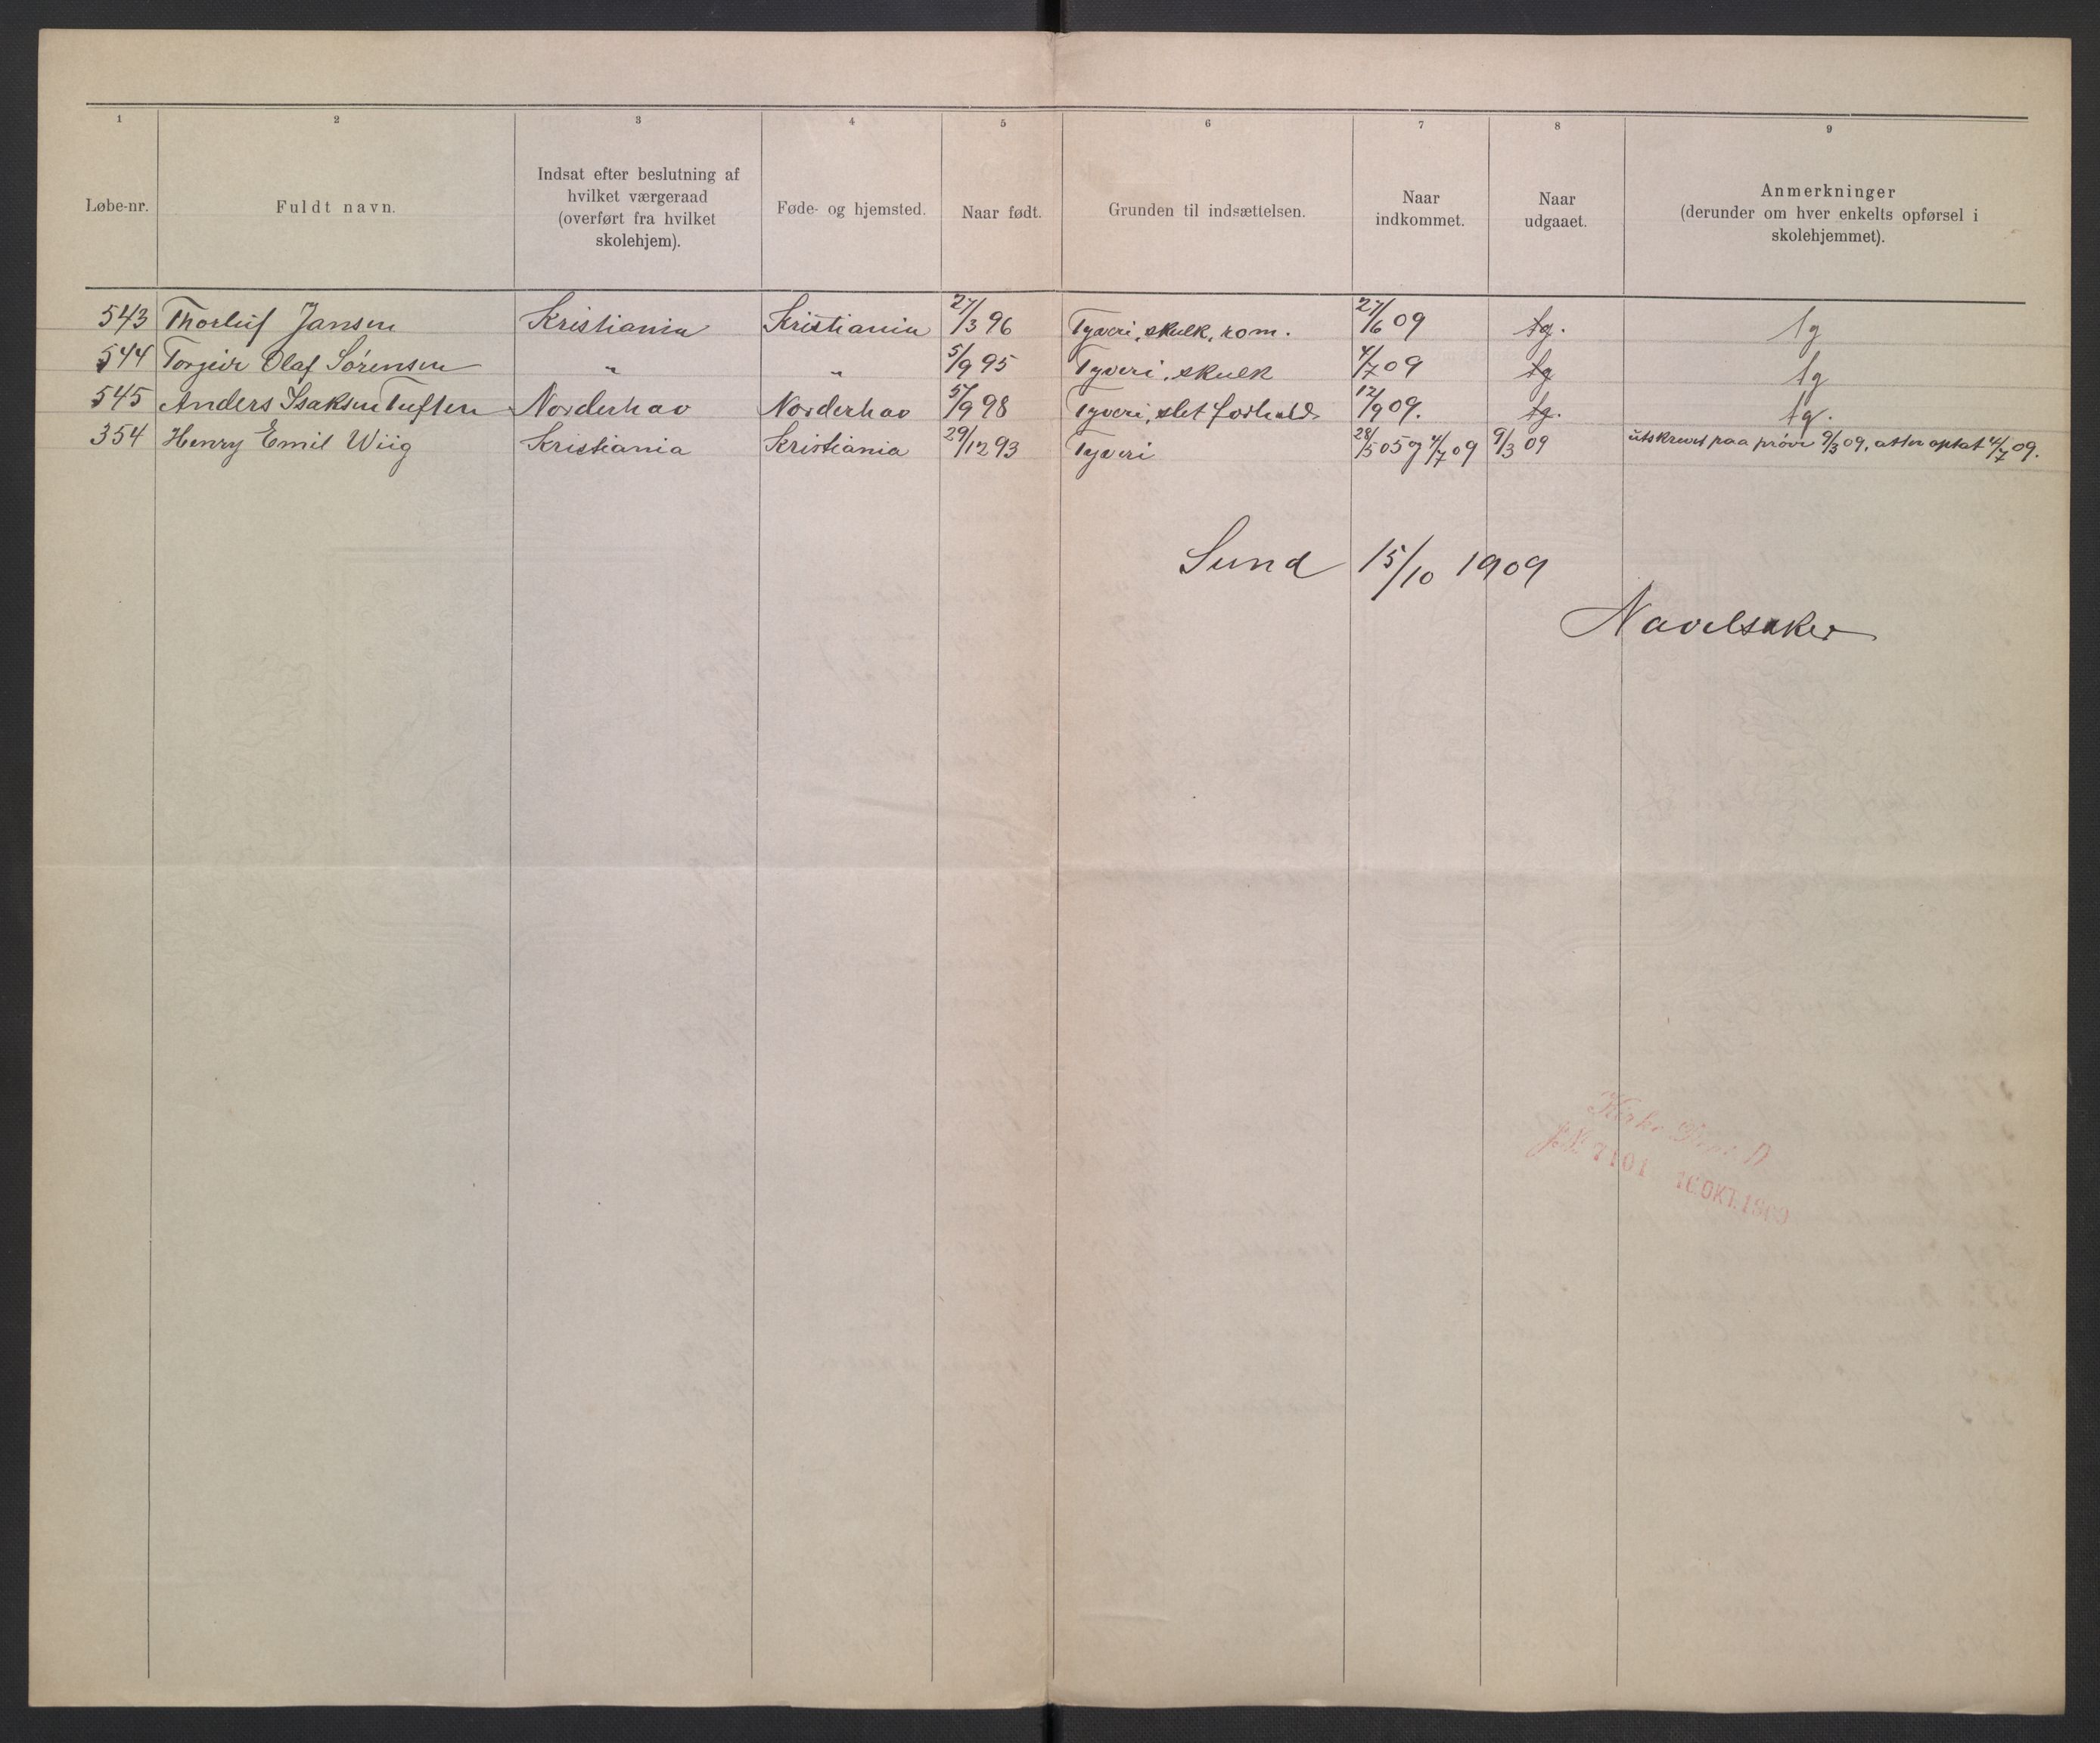 1 2 3 4 5 6 7 8 9
Løbe-nr. Fuldt navn. Indsat efter beslutning af hvilket værgeraad (overført fra hvilket skolehjem). Føde- og hjemsted. Naar født. Grunden til indsættelsen. Naar indkommet. Naar udgaaet. Anmerkninger (derunder om hver enkelts opførsel i skolehjemmet).
543 Thorleif Jansen Kristiania Kristiania 27/3 96 Tyveri, skulk, rom. 27/6 09 tg. tg
544 Torgeir Olaf Sörensen " " 5/9 95 Tyveri, skulk 4/7 09 tg tg
545 Anders Isaksen Tuften Norderhov Norderhov 5/9 98 Tyveri, slet forhold 12/9 09. tg. tg.
354 Henry Emil Wiig Kristiania Kristiania 29/12 93 Tyveri 28/5 05 og 4/7 09 9/3 09 utskrevet paa prøve 9/3 09, atter optat 4/7 09.
Sund 15/10 1909
Navelsaker
Kirke Dept D
J.N. 7101 16 OKT. 1909